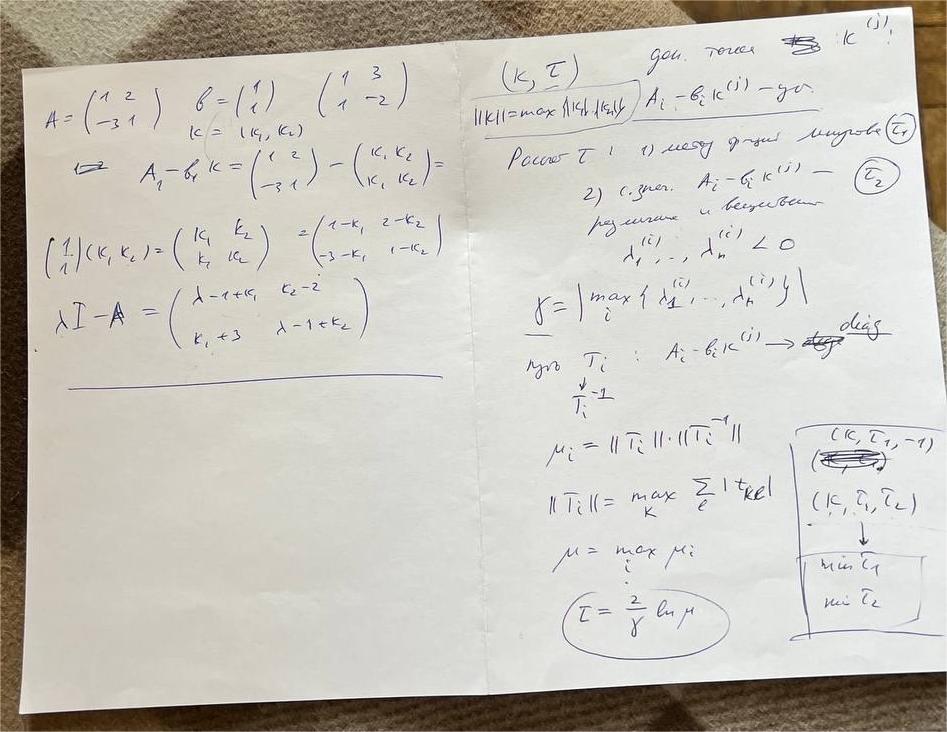 A = (1 2; -3 1)   b = (1; 1)   (1 3; 1 -2)
k = (k₁, k₂)
A₁ - b₁ k = (1 2; -3 1) - (k₁ k₂; k₁ k₂) =
(1; 1)(k₁ k₂) = (k₁ k₂; k₁ k₂) = (1-k₁ 2-k₂; -3-k₁ 1-k₂)
λI - A = (λ-1+k₁ k₂-2; k₁+3 λ-1+k₂)
(k, τ)   доп. точка k⁽ʲ⁾:
||k|| = max{|k₁|,|k₂|}   Aᵢ - bᵢk⁽ʲ⁾ -
Расчет τ : 1) метод τ₁
2) с.знач. Aᵢ - bᵢk⁽ʲ⁾ - τ₂
различные и веществен
λ₁⁽ⁱ⁾, .., λₙ⁽ⁱ⁾ < 0
γ = |max{λ₁⁽ⁱ⁾, .., λₙ⁽ⁱ⁾}|
i
пусть Tᵢ : Aᵢ - bᵢk⁽ʲ⁾ → diag
↓
Tᵢ⁻¹
μᵢ = ||Tᵢ|| · ||Tᵢ⁻¹||
||Tᵢ|| = max Σ |tₖₑ|
k e
μ = max μᵢ
i
τ = 2/γ ln μ
(k, τ₁, -1)
(k, τ₁, τ₂)
↓
min τ₁
min τ₂